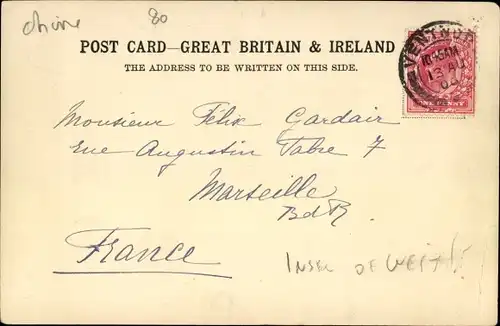 chine 80
POST CARD—GREAT BRITAIN & IRELAND
THE ADDRESS TO BE WRITTEN ON THIS SIDE.
VENTNOR
10.45AM
13 AU
ONE PENNY
Monsieur Félix Gardair
rue Augustin Fabre 7
Marseille
BdR.
France
INSEL OF WEIT!?